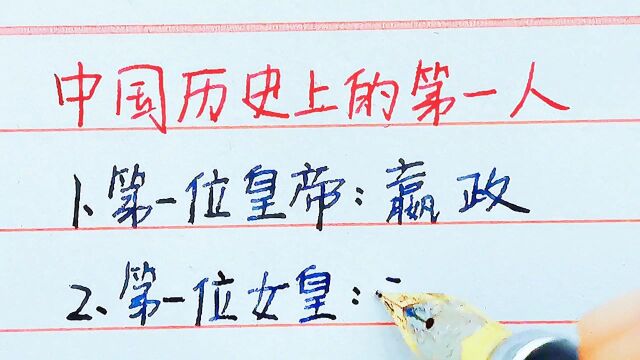 中国历史上的第一人
1、第一位皇帝:嬴政
2、第一位女皇: